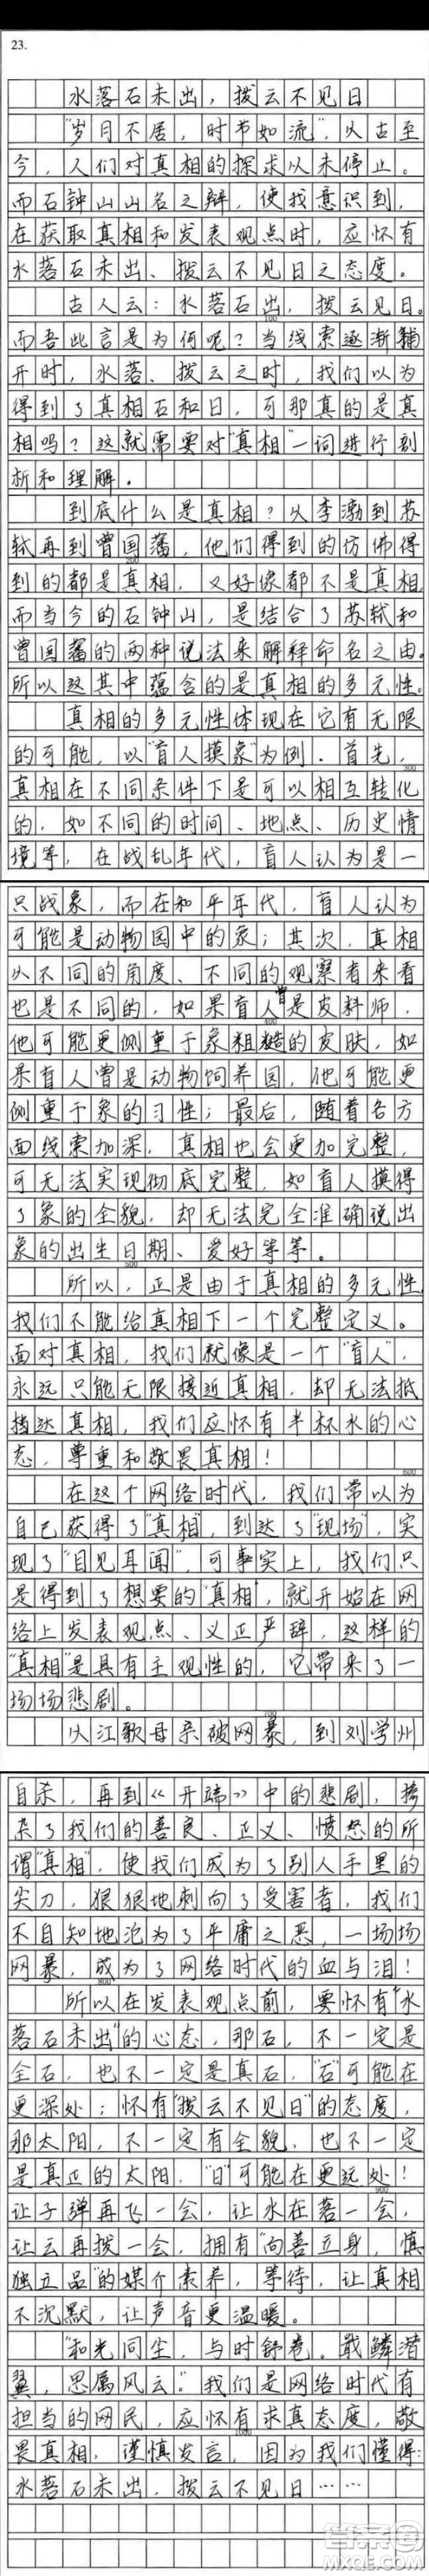 23.
水落石未出，拨云不见日
“岁月不居，时节如流”，从古至
今，人们对真相的探求从未停止。
而石钟山山名之辩，使我意识到，
在获取真相和发表观点时，应怀有
水落石未出、拨云不见日之态度。
古人云：水落石出，拨云见日。
100
而吾此言是为何呢？当线索逐渐铺
开时，水落、拨云之时，我们以为
得到了真相石和日，可那真的是真
相吗？这就需要对“真相”一词进行剖
析和理解。
到底什么是真相？从李渤到苏
轼再到曾国藩，他们得到的仿佛得
200
到的都是真相，又好像都不是真相，
而当今的石钟山，是结合了苏轼和
曾国藩的两种说法来解释命名之由。
所以这其中蕴含的是真相的多元性。
真相的多元性体现在它有无限
的可能，以“盲人摸象”为例．首先，
300
真相在不同条件下是可以相互转化
的，如不同的时间、地点、历史情
境等，在战乱年代，盲人认为是一
只战象，而在和平年代，盲人认为
可能是动物园中的象；其次，真相
从不同的角度、不同的观察者来看
也是不同的，如果盲人曾是皮料师，
400
他可能更侧重于象粗糙的皮肤，如
果盲人曾是动物饲养园，他可能更
侧重于象的习性；最后，随着各方
面线索加深，真相也会更加完整，
可无法实现彻底完整，如盲人摸得
了象的全貌，却无法完全准确说出
象的出生日期、爱好等等。
500
所以，正是由于真相的多元性，
我们不能给真相下一个完整定义。
面对真相，我们就像是一个“盲人”，
永远只能无限接近真相，却无法抵
挡达真相，我们应怀有半杯水的心
态，尊重和敬畏真相！
600
在这个网络时代，我们常以为
自己获得了“真相”，到达了“现场”，实
现了“目见耳闻”，可事实上，我们只
是得到了想要的“真相”，就开始在网
络上发表观点、义正严辞，这样的
“真相”是具有主观性的，它带来了一
场场悲剧。
700
从江歌母亲被网暴，到刘学州
自杀，再到《开端》中的悲剧，掺
杂了我们的善良、正义、愤怒的所
谓“真相”，使我们成为了别人手里的
尖刀，狠狠地刺向了受害者，我们
不自知地沦为了平庸之恶，一场场
网暴，成为了网络时代的血与泪！
800
所以在发表观点前，要怀有“水
落石未出”的心态，那石，不一定是
全石，也不一定是真石，“石”可能在
更深处；怀有“拨云不见日”的态度，
那太阳，不一定有全貌，也不一定
是真正的太阳，“日”可能在更远处！
900
让子弹再飞一会，让水在落一会，
让云再拨一会，拥有“向善立身，慎
独立品”的媒介素养，等待，让真相
不沉默，让声音更温暖。
“和光同尘，与时舒卷。戢鳞潜
翼，思属风云。”我们是网络时代有
担当的网民，应怀有求真态度，敬
1000
畏真相，谨慎发言，因为我们懂得：
水落石未出，拨云不见日……
答案圈
MXQE.COM